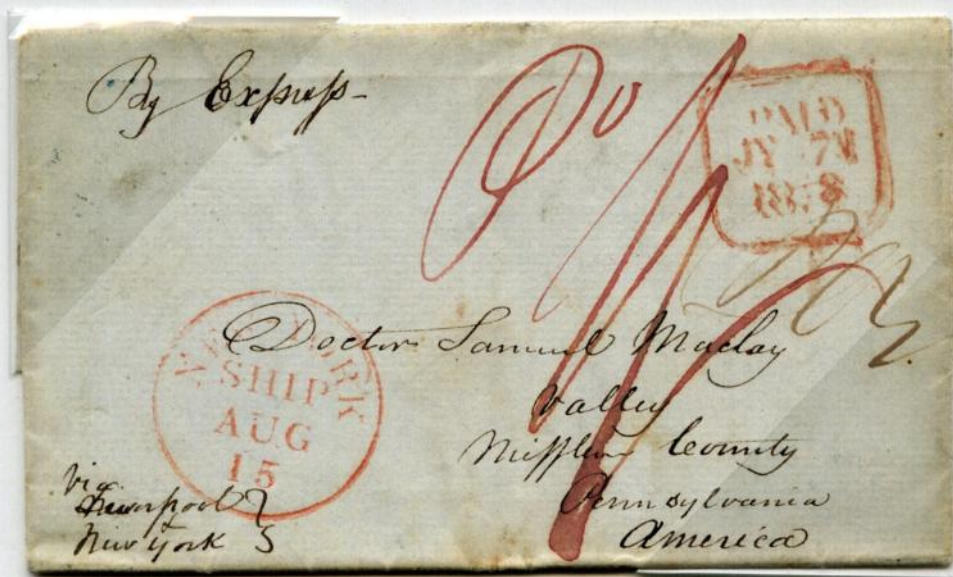 By Express
Pd 1/
PAID
JY 27
184
NEW YORK
SHIP
AUG
15
Doctor Samuel Maclay
Valley
Mifflin County
Pennsylvania
America
via
Liverpool &
New York